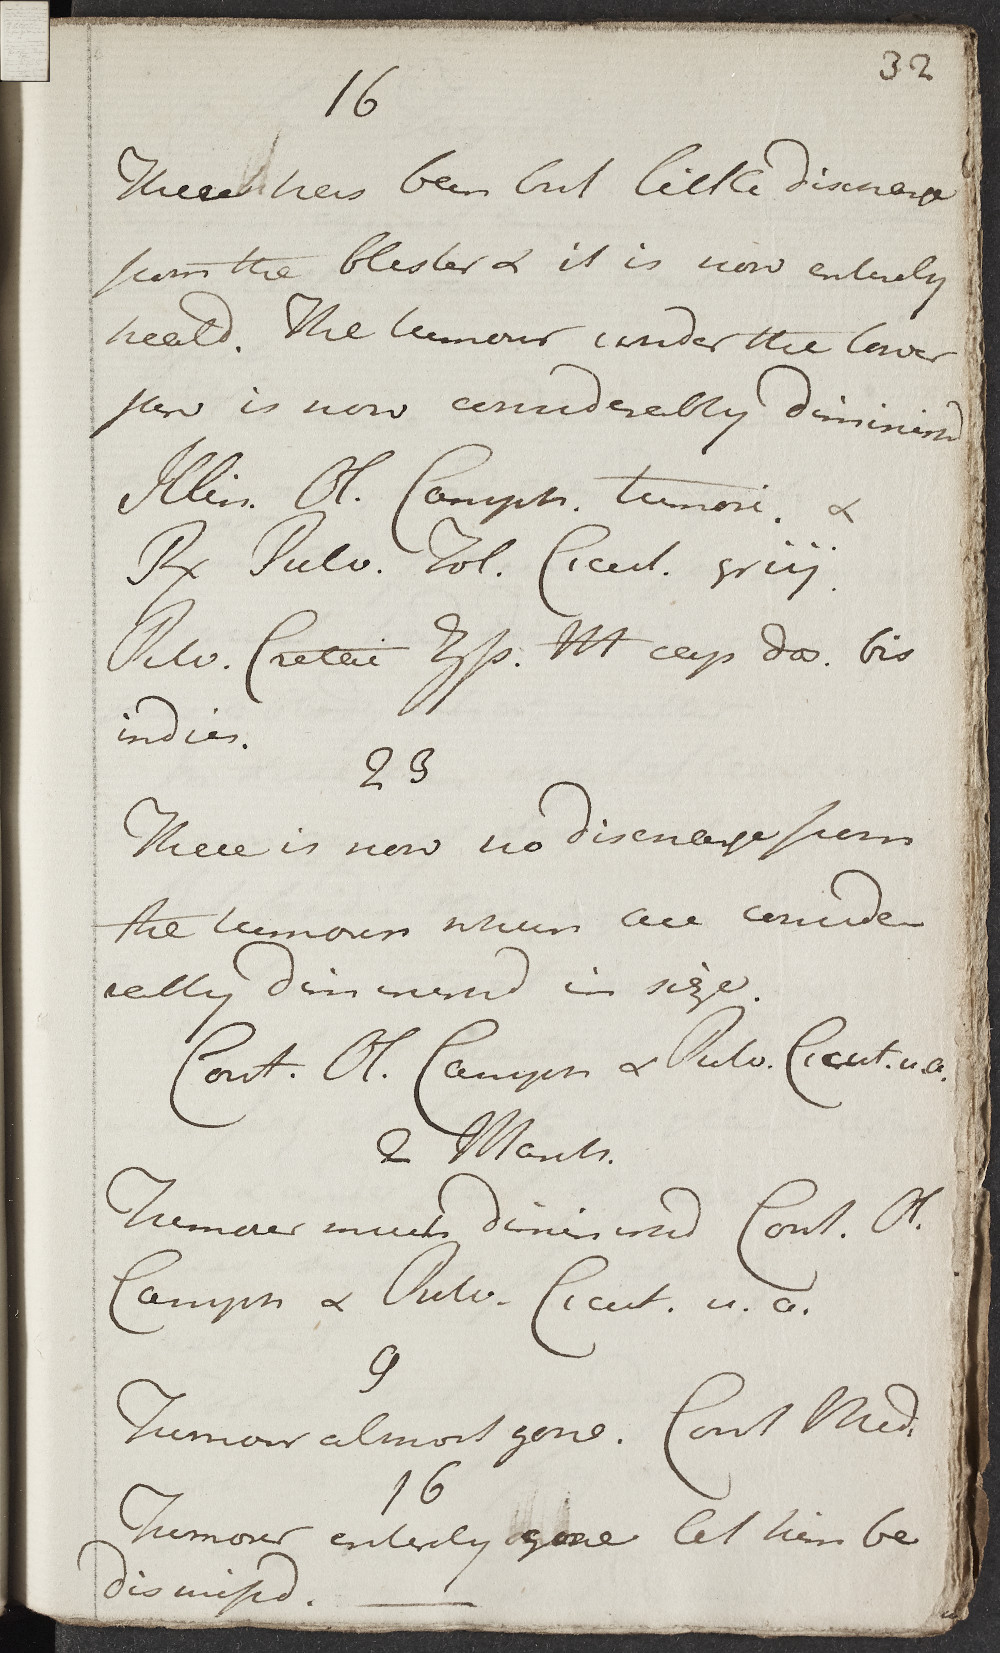 32
16
There has been but little discharge
from the blister & it is now enterely
heald. The tumour under the lower
jaw is now considerably diminishd
Illin. Ol. Camph. tumori. &
Rx Pulv. Fol. Cicut. griij.
Pulv. Cretae ʒſs. M cap dos. bis
indies.
23
There is now no discharge from
the tumours which are conside
rably diminishd in size.
Cont. Ol. Camph & Pulv. Cicut. u.a.
2 March.
Tumour much diminishd Cont. Ol.
Camph & Pulv. Cicut. u. a.
9
Tumour almost gone. Cont Med.
16
Tumour enterely gone let him be
dismiſsd.